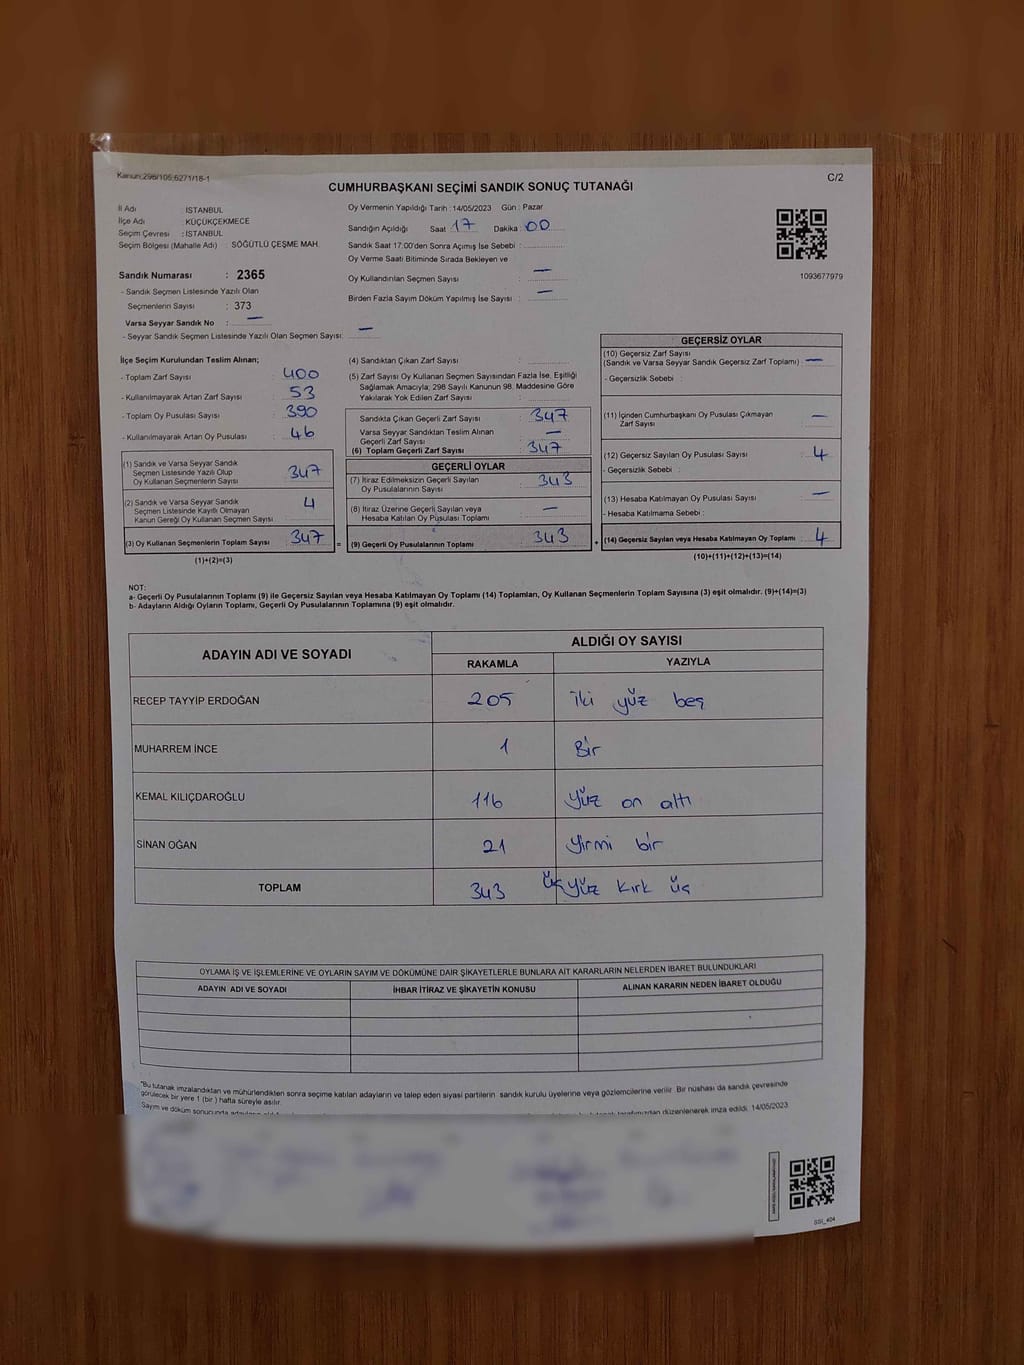 Kanun;298/105;6271/18-1
C/2
CUMHURBAŞKANI SEÇİMİ SANDIK SONUÇ TUTANAĞI
İl Adı İSTANBUL
İlçe Adı KÜÇÜKÇEKMECE
Seçim Çevresi : İSTANBUL
Seçim Bölgesi (Mahalle Adı) : SÖĞÜTLÜ ÇEŞME MAH.
Sandık Numarası : 2365
- Sandık Seçmen Listesinde Yazılı Olan
Seçmenlerin Sayısı : 373
Varsa Seyyar Sandık No : —
- Seyyar Sandık Seçmen Listesinde Yazılı Olan Seçmen Sayısı: —
Oy Vermenin Yapıldığı Tarih : 14/05/2023 Gün : Pazar
Sandığın Açıldığı Saat 17 Dakika : 00
Sandık Saat 17:00'den Sonra Açımış İse Sebebi :
Oy Verme Saati Bitiminde Sırada Bekleyen ve
Oy Kullandırılan Seçmen Sayısı : —
Birden Fazla Sayım Döküm Yapılmış İse Sayısı : —
1093677979
İlçe Seçim Kurulundan Teslim Alınan;
- Toplam Zarf Sayısı : 400
- Kullanılmayarak Artan Zarf Sayısı : 53
- Toplam Oy Pusulası Sayısı : 390
- Kullanılmayarak Artan Oy Pusulası : 46
(1) Sandık ve Varsa Seyyar Sandık
Seçmen Listesinde Yazılı Olup
Oy Kullanan Seçmenlerin Sayısı : 347
(2) Sandık ve Varsa Seyyar Sandık
Seçmen Listesinde Kayıtlı Olmayan
Kanun Gereği Oy Kullanan Seçmen Sayısı : 4
(3) Oy Kullanan Seçmenlerin Toplam Sayısı : 347 =
(1)+(2)=(3)
(4) Sandıktan Çıkan Zarf Sayısı :
(5) Zarf Sayısı Oy Kullanan Seçmen Sayısından Fazla İse, Eşitliği
Sağlamak Amacıyla; 298 Sayılı Kanunun 98. Maddesine Göre
Yakılarak Yok Edilen Zarf Sayısı :
Sandıkta Çıkan Geçerli Zarf Sayısı : 347
Varsa Seyyar Sandıktan Teslim Alınan
Geçerli Zarf Sayısı : —
(6) Toplam Geçerli Zarf Sayısı : 347
GEÇERLİ OYLAR
(7) İtiraz Edilmeksizin Geçerli Sayılan
Oy Pusulalarının Sayısı : 343
(8) İtiraz Üzerine Geçerli Sayılan veya
Hesaba Katılan Oy Pusulası Toplamı : —
(9) Geçerli Oy Pusulalarının Toplamı : 343 +
GEÇERSİZ OYLAR
(10) Geçersiz Zarf Sayısı
(Sandık ve Varsa Seyyar Sandık Geçersiz Zarf Toplamı) : —
- Geçersizlik Sebebi :
(11) İçinden Cumhurbaşkanı Oy Pusulası Çıkmayan
Zarf Sayısı : —
(12) Geçersiz Sayılan Oy Pusulası Sayısı : 4
- Geçersizlik Sebebi :
(13) Hesaba Katılmayan Oy Pusulası Sayısı : —
- Hesaba Katılmama Sebebi :
(14) Geçersiz Sayılan veya Hesaba Katılmayan Oy Toplamı : 4
(10)+(11)+(12)+(13)=(14)
NOT:
a- Geçerli Oy Pusulalarının Toplamı (9) ile Geçersiz Sayılan veya Hesaba Katılmayan Oy Toplamı (14) Toplamları, Oy Kullanan Seçmenlerin Toplam Sayısına (3) eşit olmalıdır. (9)+(14)=(3)
b- Adayların Aldığı Oyların Toplamı, Geçerli Oy Pusulalarının Toplamına (9) eşit olmalıdır.
ADAYIN ADI VE SOYADI
ALDIĞI OY SAYISI
RAKAMLA YAZIYLA
RECEP TAYYİP ERDOĞAN 205 iki yüz beş
MUHARREM İNCE 1 Bir
KEMAL KILIÇDAROĞLU 116 yüz on altı
SİNAN OĞAN 21 yirmi bir
TOPLAM 343 üç yüz kırk üç
OYLAMA İŞ VE İŞLEMLERİNE VE OYLARIN SAYIM VE DÖKÜMÜNE DAİR ŞİKAYETLERLE BUNLARA AİT KARARLARIN NELERDEN İBARET BULUNDUKLARI
ADAYIN ADI VE SOYADI İHBAR İTİRAZ VE ŞİKAYETİN KONUSU ALINAN KARARIN NEDEN İBARET OLDUĞU
"Bu tutanak imzalandıktan ve mühürlendikten sonra seçime katılan adayların ve talep eden siyasi partilerin sandık kurulu üyelerine veya gözlemcilerine verilir. Bir nüshası da sandık çevresinde
görülecek bir yere 1 (bir) hafta süreyle asılır.
Sayım ve döküm sonucunda tarafımızdan düzenlenerek imza edildi. 14/05/2023
SSI_404